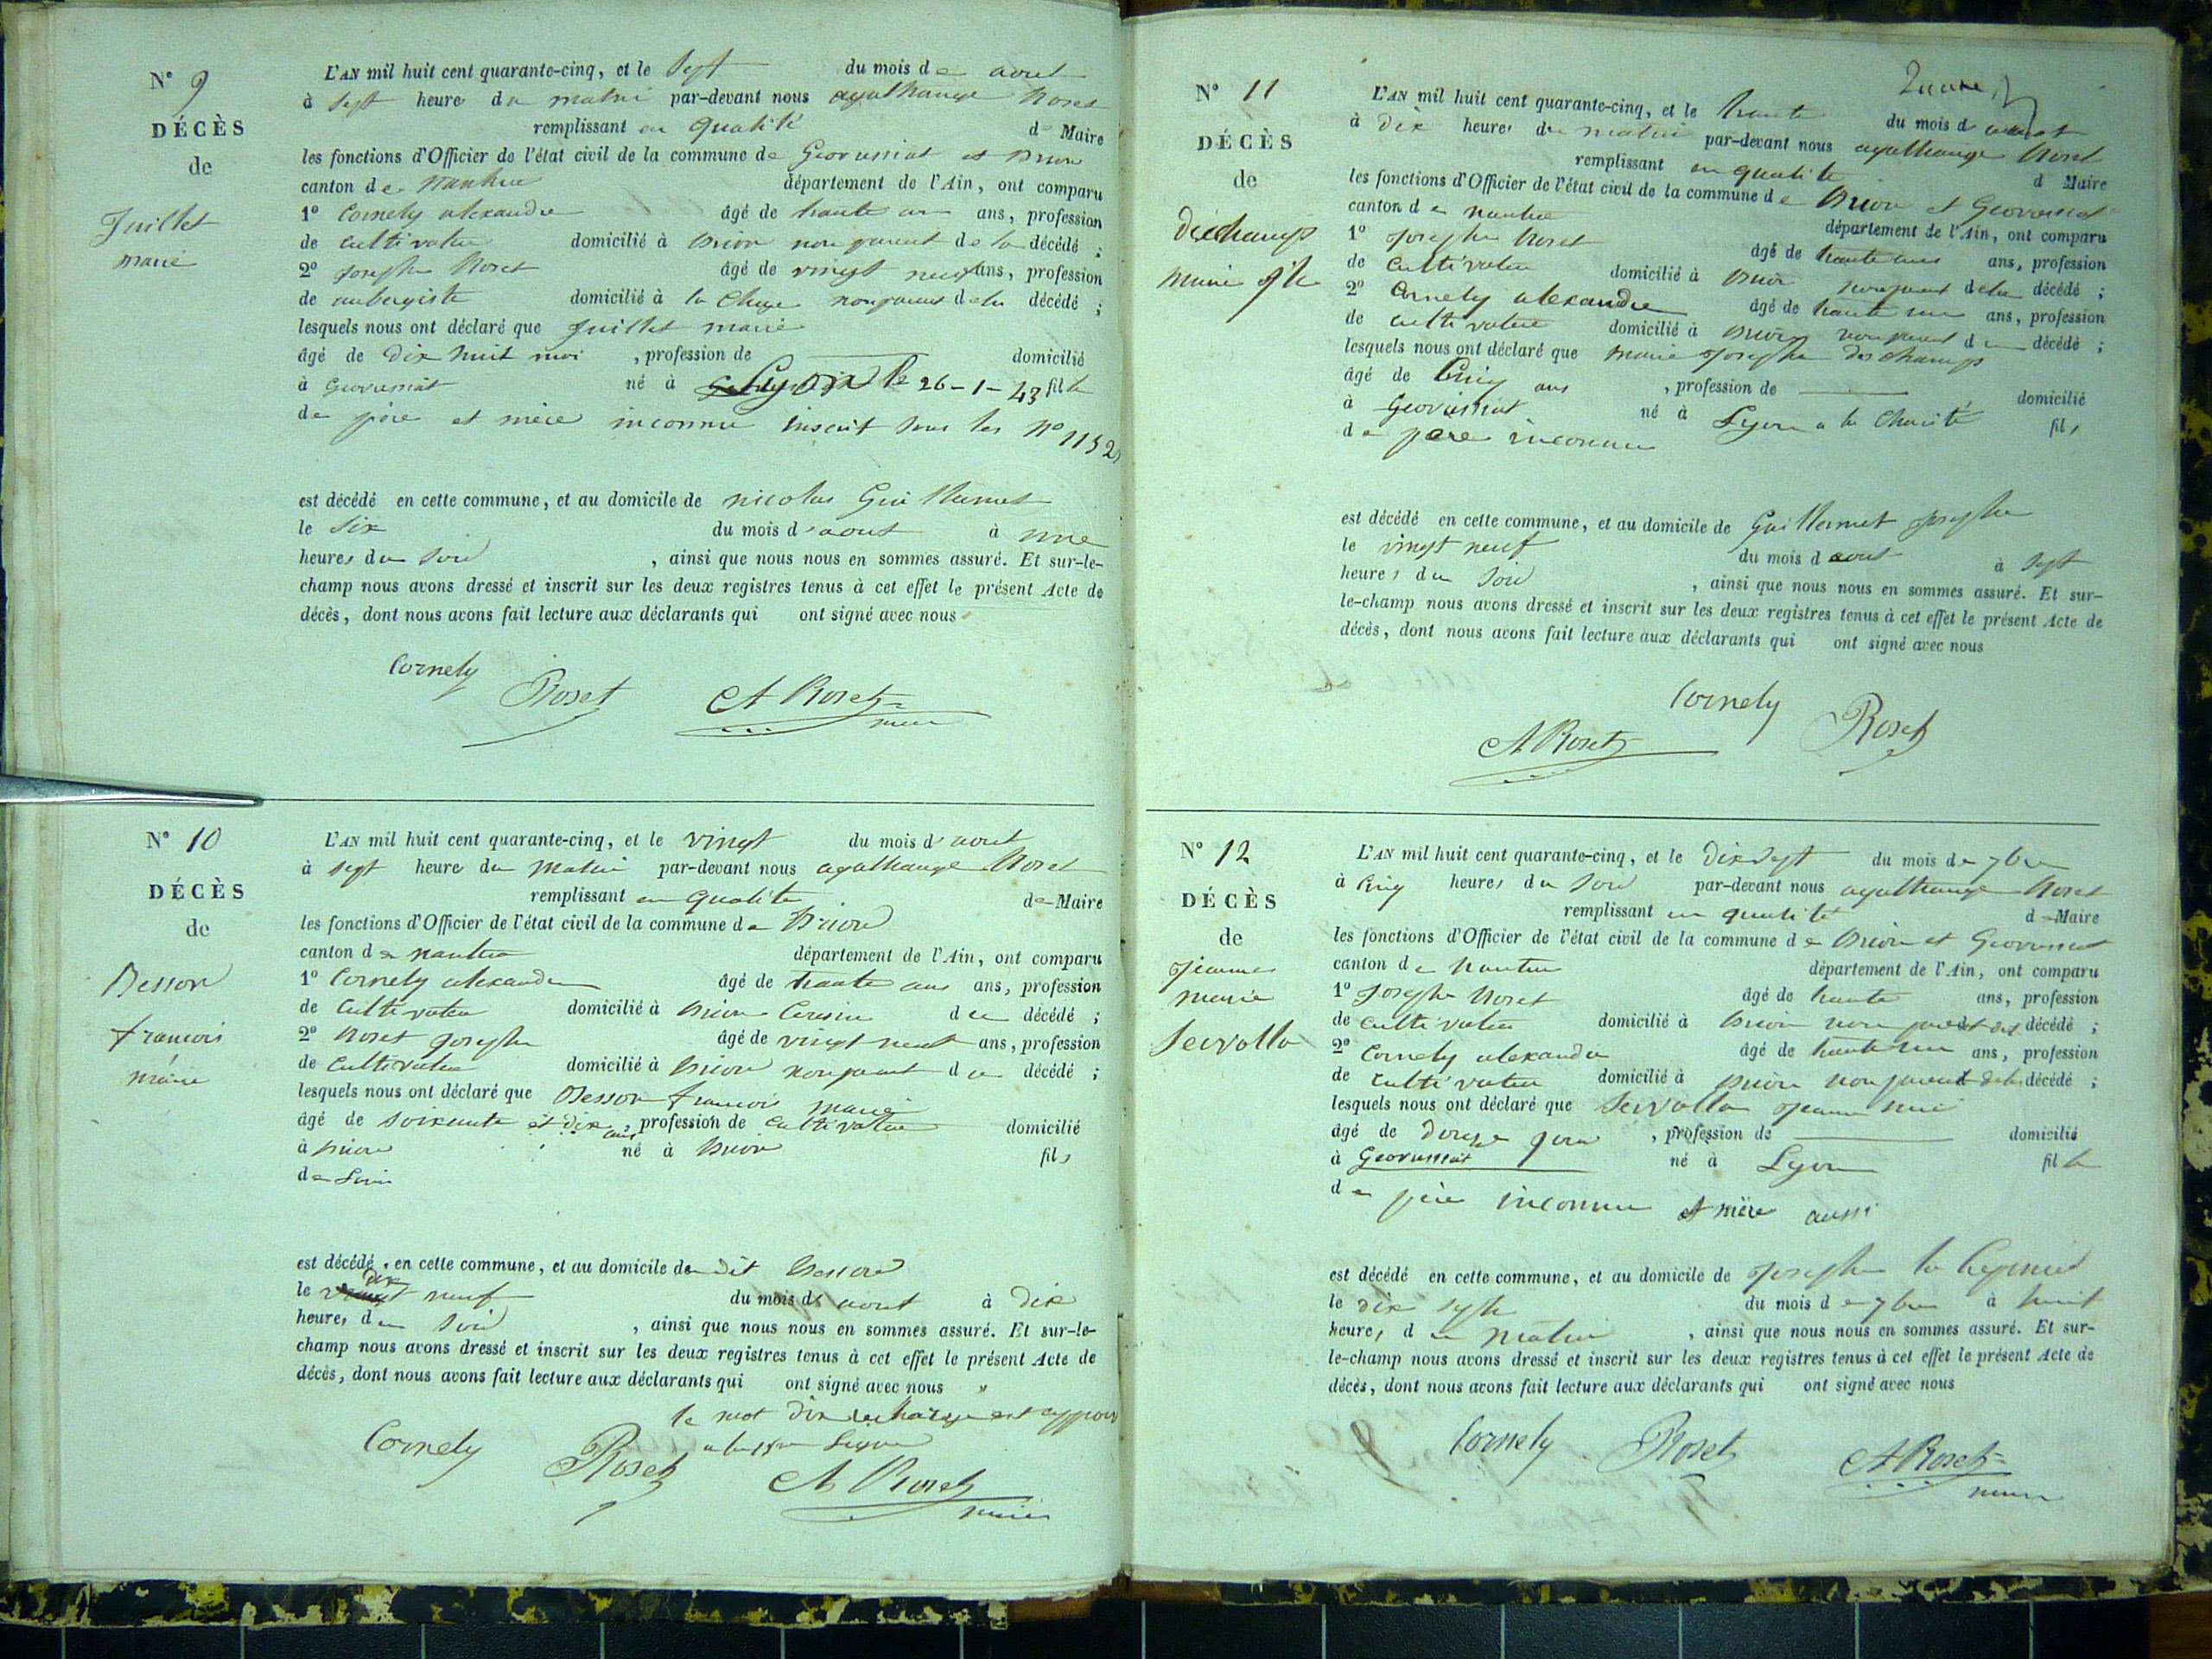 N° 9
DÉCÈS
de
Juillet
marie
L'AN mil huit cent quarante-cinq, et le sept du mois de aout
à sept heure du matin par-devant nous agathange Roset
remplissant en qualité de Maire
les fonctions d'Officier de l'état civil de la commune de Geovrissiat et Brion
canton de Nantua département de l'Ain, ont comparu
1° Cornely alexandre âgé de trente un ans, profession
de cultivateur domicilié à Brion non parent de la décédé ;
2° Joseph Roset âgé de vingt neuf ans, profession
de aubergiste domicilié à la Cluse non parent de la décédé ;
lesquels nous ont déclaré que Juillet marie
âgé de dix huit moi , profession de domicilié
à Geovrissiat né à Lyon le 26-1-43 fille
de père et mère inconnu inscrit sous les n° 1152
est décédé en cette commune, et au domicile de nicolas Guillermet
le six du mois d'aout à une
heures du soir , ainsi que nous nous en sommes assuré. Et sur-le-
champ nous avons dressé et inscrit sur les deux registres tenus à cet effet le présent Acte de
décès, dont nous avons fait lecture aux déclarants qui ont signé avec nous
Cornely Roset A Roset
maire
N° 10
DÉCÈS
de
Besson
francois
marie
L'AN mil huit cent quarante-cinq, et le vingt du mois d'aout
à sept heure du matin par-devant nous agathange Roset
remplissant en qualité de Maire
les fonctions d'Officier de l'état civil de la commune de Brion
canton de nantua département de l'Ain, ont comparu
1° Cornely alexandre âgé de trente ans ans, profession
de cultivateur domicilié à Brion Cousin du décédé ;
2° Roset Joseph âgé de vingt neuf ans, profession
de cultivateur domicilié à Brion non parent du décédé ;
lesquels nous ont déclaré que Besson francois marie
âgé de soixante et dix ans , profession de cultivateur domicilié
à Brion né à Brion fils
de
est décédé en cette commune, et au domicile de dit Besson
le dix neuf du mois d'aout à dix
heures du soir , ainsi que nous nous en sommes assuré. Et sur-le-
champ nous avons dressé et inscrit sur les deux registres tenus à cet effet le présent Acte de
décès, dont nous avons fait lecture aux déclarants qui ont signé avec nous
le mot dix surcharge est approuv
a la ligne
Cornely Roset A Roset
maire
N° 11
DÉCÈS
de
déchamps
marie jph
L'AN mil huit cent quarante-cinq, et le trente du mois d aout
à dix heures du matin par-devant nous agathange Roset
remplissant en qualité d Maire
les fonctions d'Officier de l'état civil de la commune de Brion et Geovrissiat
canton de nantua département de l'Ain, ont comparu
1° Joseph Roset âgé de trente ans ans, profession
de cultivateur domicilié à Brion non parent de la décédé ;
2° Cornely alexandre âgé de trente un ans, profession
de cultivateur domicilié à Brion non parent du décédé ;
lesquels nous ont déclaré que marie Joseph deschamps
âgé de Cinq ans , profession de domicilié
à Geovrissiat né à Lyon a la Charité fils
de pere inconnu
est décédé en cette commune, et au domicile de Guillermet Joseph
le vingt neuf du mois d aout à sept
heures du soir , ainsi que nous nous en sommes assuré. Et sur-
le-champ nous avons dressé et inscrit sur les deux registres tenus à cet effet le présent Acte de
décès, dont nous avons fait lecture aux déclarants qui ont signé avec nous
Cornely Roset
A Roset
N° 12
DÉCÈS
de
Jeanne
marie
Servolla
L'AN mil huit cent quarante-cinq, et le dix sept du mois de 7bre
à cinq heures du soir par-devant nous agathange Roset
remplissant en qualité de Maire
les fonctions d'Officier de l'état civil de la commune de Brion et Geovrissiat
canton de Nantua département de l'Ain, ont comparu
1° Joseph Roset âgé de trente ans, profession
de cultivateur domicilié à Brion non parent décédé ;
2° Cornely alexandre âgé de trente un ans, profession
de cultivateur domicilié à Brion non parent de la décédé ;
lesquels nous ont déclaré que Servolla Jeanne
âgé de douze jour , profession de domicilié
à Geovrissiat né à Lyon fille
de père inconnu et mère aussi
est décédé en cette commune, et au domicile de Joseph
le dix sept du mois de 7bre à huit
heures du matin , ainsi que nous nous en sommes assuré. Et sur-
le-champ nous avons dressé et inscrit sur les deux registres tenus à cet effet le présent Acte de
décès, dont nous avons fait lecture aux déclarants qui ont signé avec nous
Cornely Roset A Roset
maire